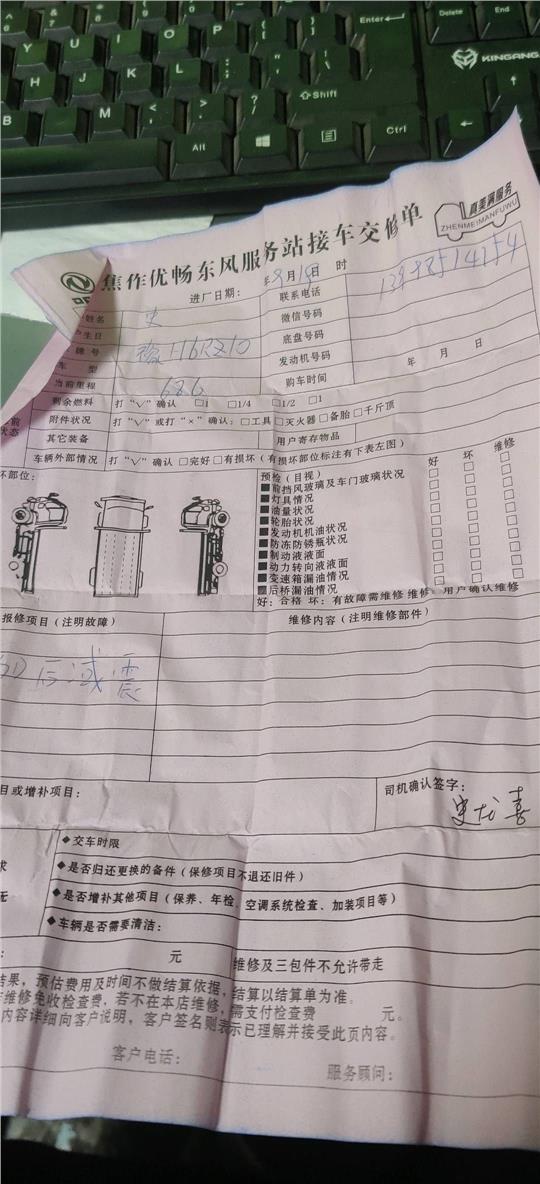 Enter
Delete
End
KINGANG
Shift
Alt
Ctrl
真美满服务
ZHENMEIMANFUWU
焦作优畅东风服务站接车交修单
进厂日期： 年9月19日 时
姓名 史
联系电话
生日
微信号码
牌号 H16RZ10
底盘号码
车型
发动机号码
当前里程 686
购车时间 年 月 日
剩余燃料 打“√”确认 □1 □1/4 □1/2 □1
附件状况 打“√”或打“×”确认：□工具□灭火器□备胎□千斤顶
其它装备
用户寄存物品
车辆外部情况 打“√”确认 □完好□有损坏（有损坏部位标注有下表左图）
坏部位：
预检（目视） 好 坏 维修
■前挡风玻璃及车门玻璃状况 □ □ □
■灯具情况 □ □ □
■油量状况 □ □ □
■轮胎状况 □ □ □
■发动机机油状况 □ □ □
■防冻防锈瓶状况 □ □ □
■制动液液面 □ □ □
■动力转向液液面 □ □ □
■变速箱漏油情况 □ □ □
■后桥漏油情况 □ □ □
好：合格 坏：有故障需维修 维修：用户确认维修
报修项目（注明故障）
维修内容（注明维修部件）
后减震
目或增补项目：
司机确认签字：
史龙喜
◆交车时限
◆是否归还更换的备件（保修项目不退还旧件）
◆是否增补其他项目（保养、年检、空调系统检查、加装项目等）
◆车辆是否需要清洁：
元
维修及三包件不允许带走
结果，预估费用及时间不做结算依据，结算以结算单为准。
维修免收检查费，若不在本店维修，需支付检查费 元。
内容详细向客户说明，客户签名则表示已理解并接受此页内容。
客户电话：
服务顾问：